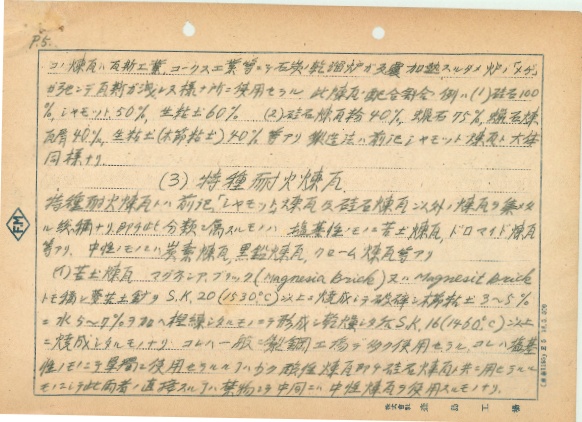 P.5.
コノ煉瓦ハ瓦斯工業、コークス工業等ニテ石炭ノ乾溜炉ガ 加熱スルタメ炉ノ「メヂ」
ガ 瓦斯ガ洩レル様ナ所ニ使用セラル 此煉瓦ノ配合割合ノ例ハ (1)硅石100
%, シャモット50%, 生粘土60% (2)硅石煉瓦粉40%, 75%,
瓦屑40%, 生粘土(木節粘土)40%等アリ 製造法ハ前記シャモット煉瓦ト大体
同様ナリ.
(3) 特種耐火煉瓦
特種耐火煉瓦トハ前記「シャモット」煉瓦及硅石煉瓦以外ノ煉瓦ヲ集メタ
ル総称ナリ 即チ 分類ニ属スルモノハ 塩基性ノモノニ苦土煉瓦, ドロマイド煉瓦
等アリ. 中性ノモノニハ炭素煉瓦, 黒鉛煉瓦, クローム煉瓦等アリ
(イ) 苦土煉瓦 マグネシア, ブリック (Magnesia brick) 又ハ Magnesit brick
トモ称シ 苦土 S.K. 20 (1530°C) 以上ニ焼成シテ破砕シ木節粘土 3~5%
ニ水 5~7%ヲ加ヘ捏練シタルモノニテ形成シ乾燥シタル後 S.K. 16 (1460°C) 以上
ニ焼成シタルモノナリ コレハ一般ニ製鋼工場ニ多ク使用セラル, コレハ塩基
性ノモノニテ単独ニ使用セラルル 酸性煉瓦即チ硅石煉瓦ト共ニ用ヒラルル
モノニシテ此両者ノ直接スル 中間ニハ中性煉瓦ヲ使用スルモノナリ.
FM
株式会社 工場